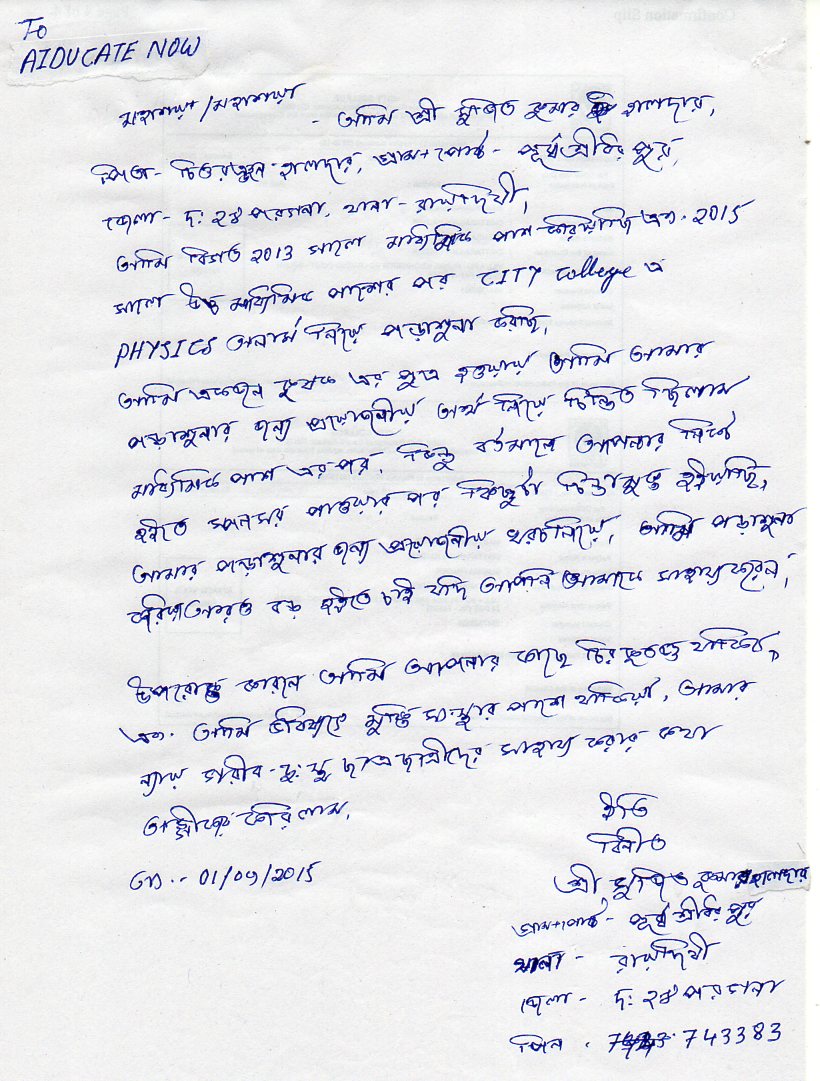 To
AIDUCATE NOW
মহাশয় / মহাশয়া
- আমি শ্রী সুজিত কুমার হালদার,
পিতা - চিত্তরঞ্জন হালদার, গ্রাম + পোষ্ট - পূর্ব শ্রীধরপুর,
জেলা - দঃ ২৪ পরগনা, থানা - রায়দিঘী,
আমি বিগত 2013 সালে মাধ্যমিক পাশ করিয়াছি এবং 2015
সালে উচ্চ মাধ্যমিক পাশের পর CITY College এ
PHYSICS অনার্স নিয়ে পড়াশুনা করছি,
আমি একজন কৃষক এর পুত্র হওয়ায় আমি আমার
পড়াশুনার জন্য প্রয়োজনীয় অর্থ নিয়ে চিন্তিত ছিলাম
মাধ্যমিক পাশ এর পর, কিন্তু বর্তমানে আপনার নিকট
হইতে স্পনসর পাওয়ার পর কিছুটা চিন্তামুক্ত হইয়াছি,
আমার পড়াশুনার জন্য প্রয়োজনীয় খরচ নিয়ে, আমি পড়াশুনা
করিয়া আরও বড় হইতে চাই যদি আপনি আমাকে সাহায্য করেন,
উপরোক্ত কারনে আমি আপনার কাছে চির কৃতজ্ঞ থাকিব,
এবং আমি ভবিষ্যতে মুক্তি সংস্থার পাশে থাকিয়া, আমার
ন্যায় গরীব - দুঃস্থ ছাত্র ছাত্রীদের সাহায্য করার কথা
অঙ্গীকার করিলাম,
তাং - 01/09/2015
ইতি
বিনীত
শ্রী সুজিত কুমার হালদার
গ্রাম + পোষ্ট - পূর্ব শ্রীধরপুর
থানা - রায়দিঘী
জেলা - দঃ ২৪ পরগনা
পিন - 743383